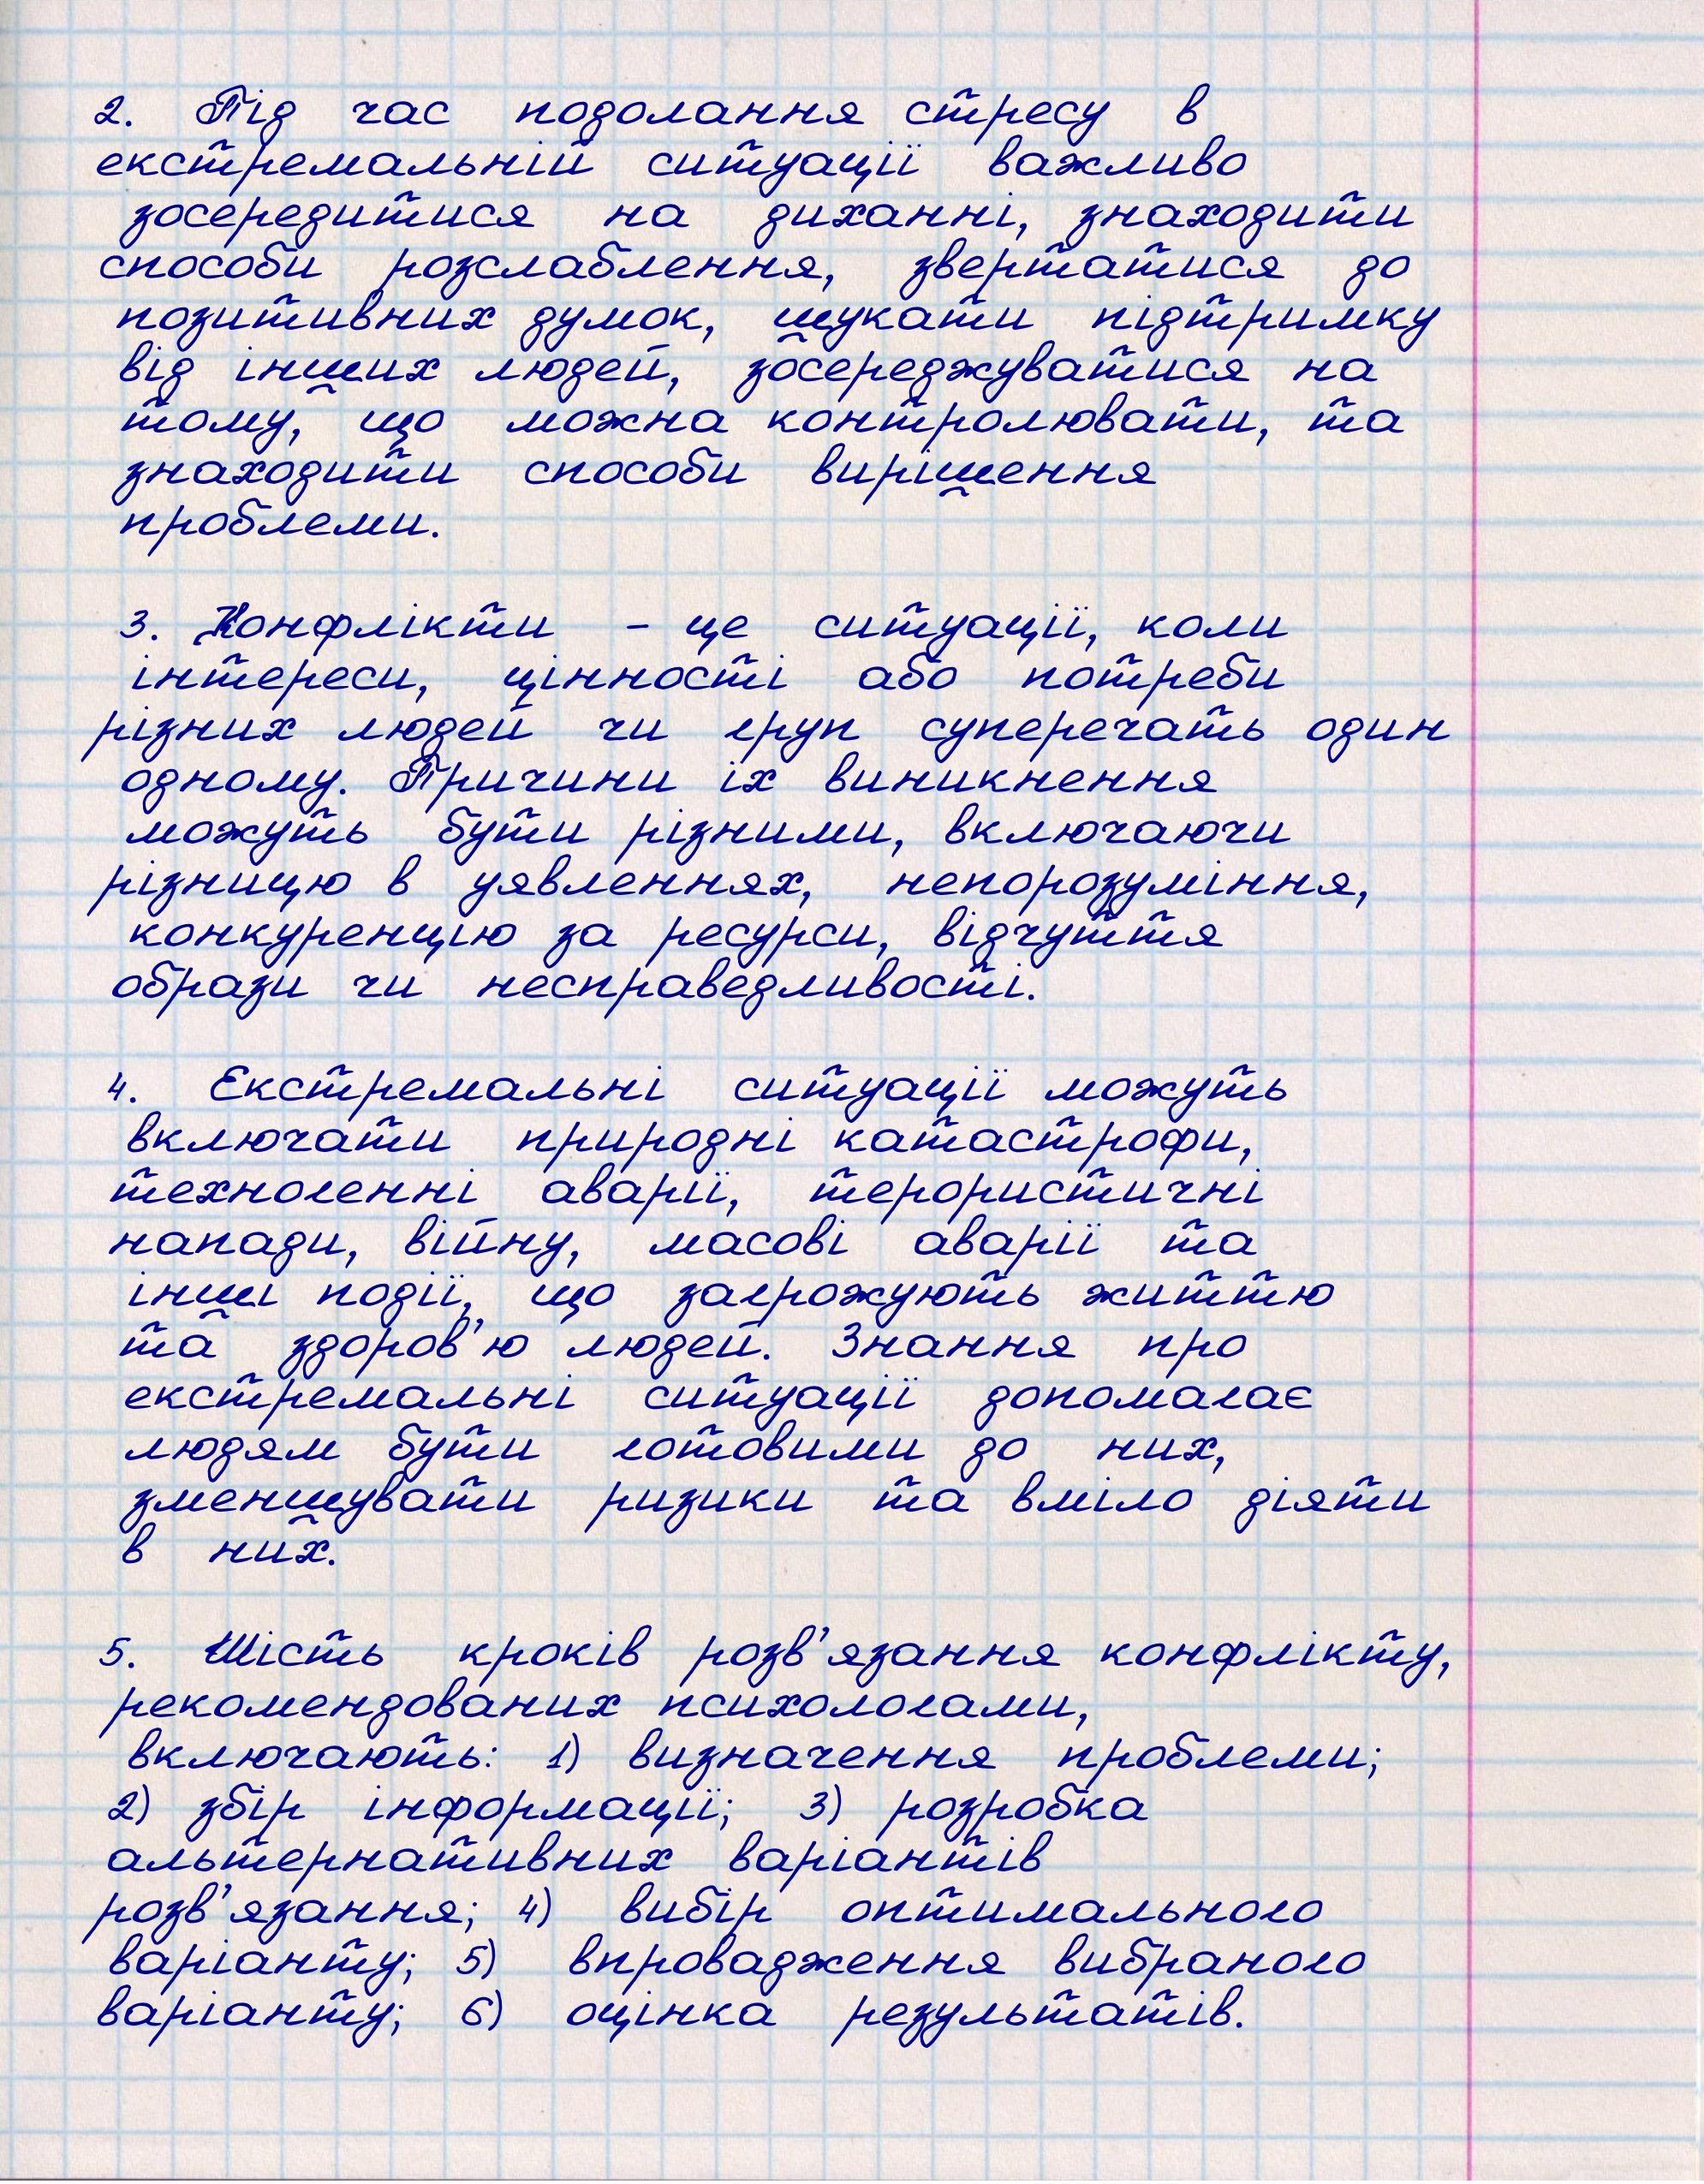 2. Під час подолання стресу в
екстремальній ситуації важливо
зосередитися на диханні, знаходити
способи розслаблення, звертатися до
позитивних думок, шукати підтримку
від інших людей, зосереджуватися на
тому, що можна контролювати, та
знаходити способи вирішення
проблеми.
3. Конфлікти - це ситуації, коли
інтереси, цінності або потреби
різних людей чи груп суперечать один
одному. Причини їх виникнення
можуть бути різними, включаючи
різницю в уявленнях, непорозуміння,
конкуренцію за ресурси, відчуття
образи чи несправедливості.
4. Екстремальні ситуації можуть
включати природні катастрофи,
техногенні аварії, терористичні
напади, війну, масові аварії та
інші події, що загрожують життю
та здоров'ю людей. Знання про
екстремальні ситуації допомагає
людям бути готовими до них,
зменшувати ризики та вміло діяти
в них.
5. Шість кроків розв'язання конфлікту,
рекомендованих психологами,
включають: 1) визначення проблеми;
2) збір інформації; 3) розробка
альтернативних варіантів
розв'язання; 4) вибір оптимального
варіанту; 5) впровадження вибраного
варіанту; 6) оцінка результатів.